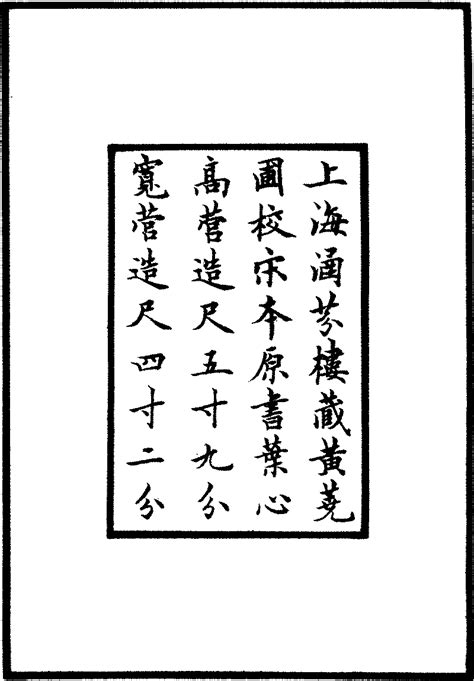 上海涵芬樓藏黃蕘
圃校宋本原書葉心
高營造尺五寸九分
寬營造尺四寸二分